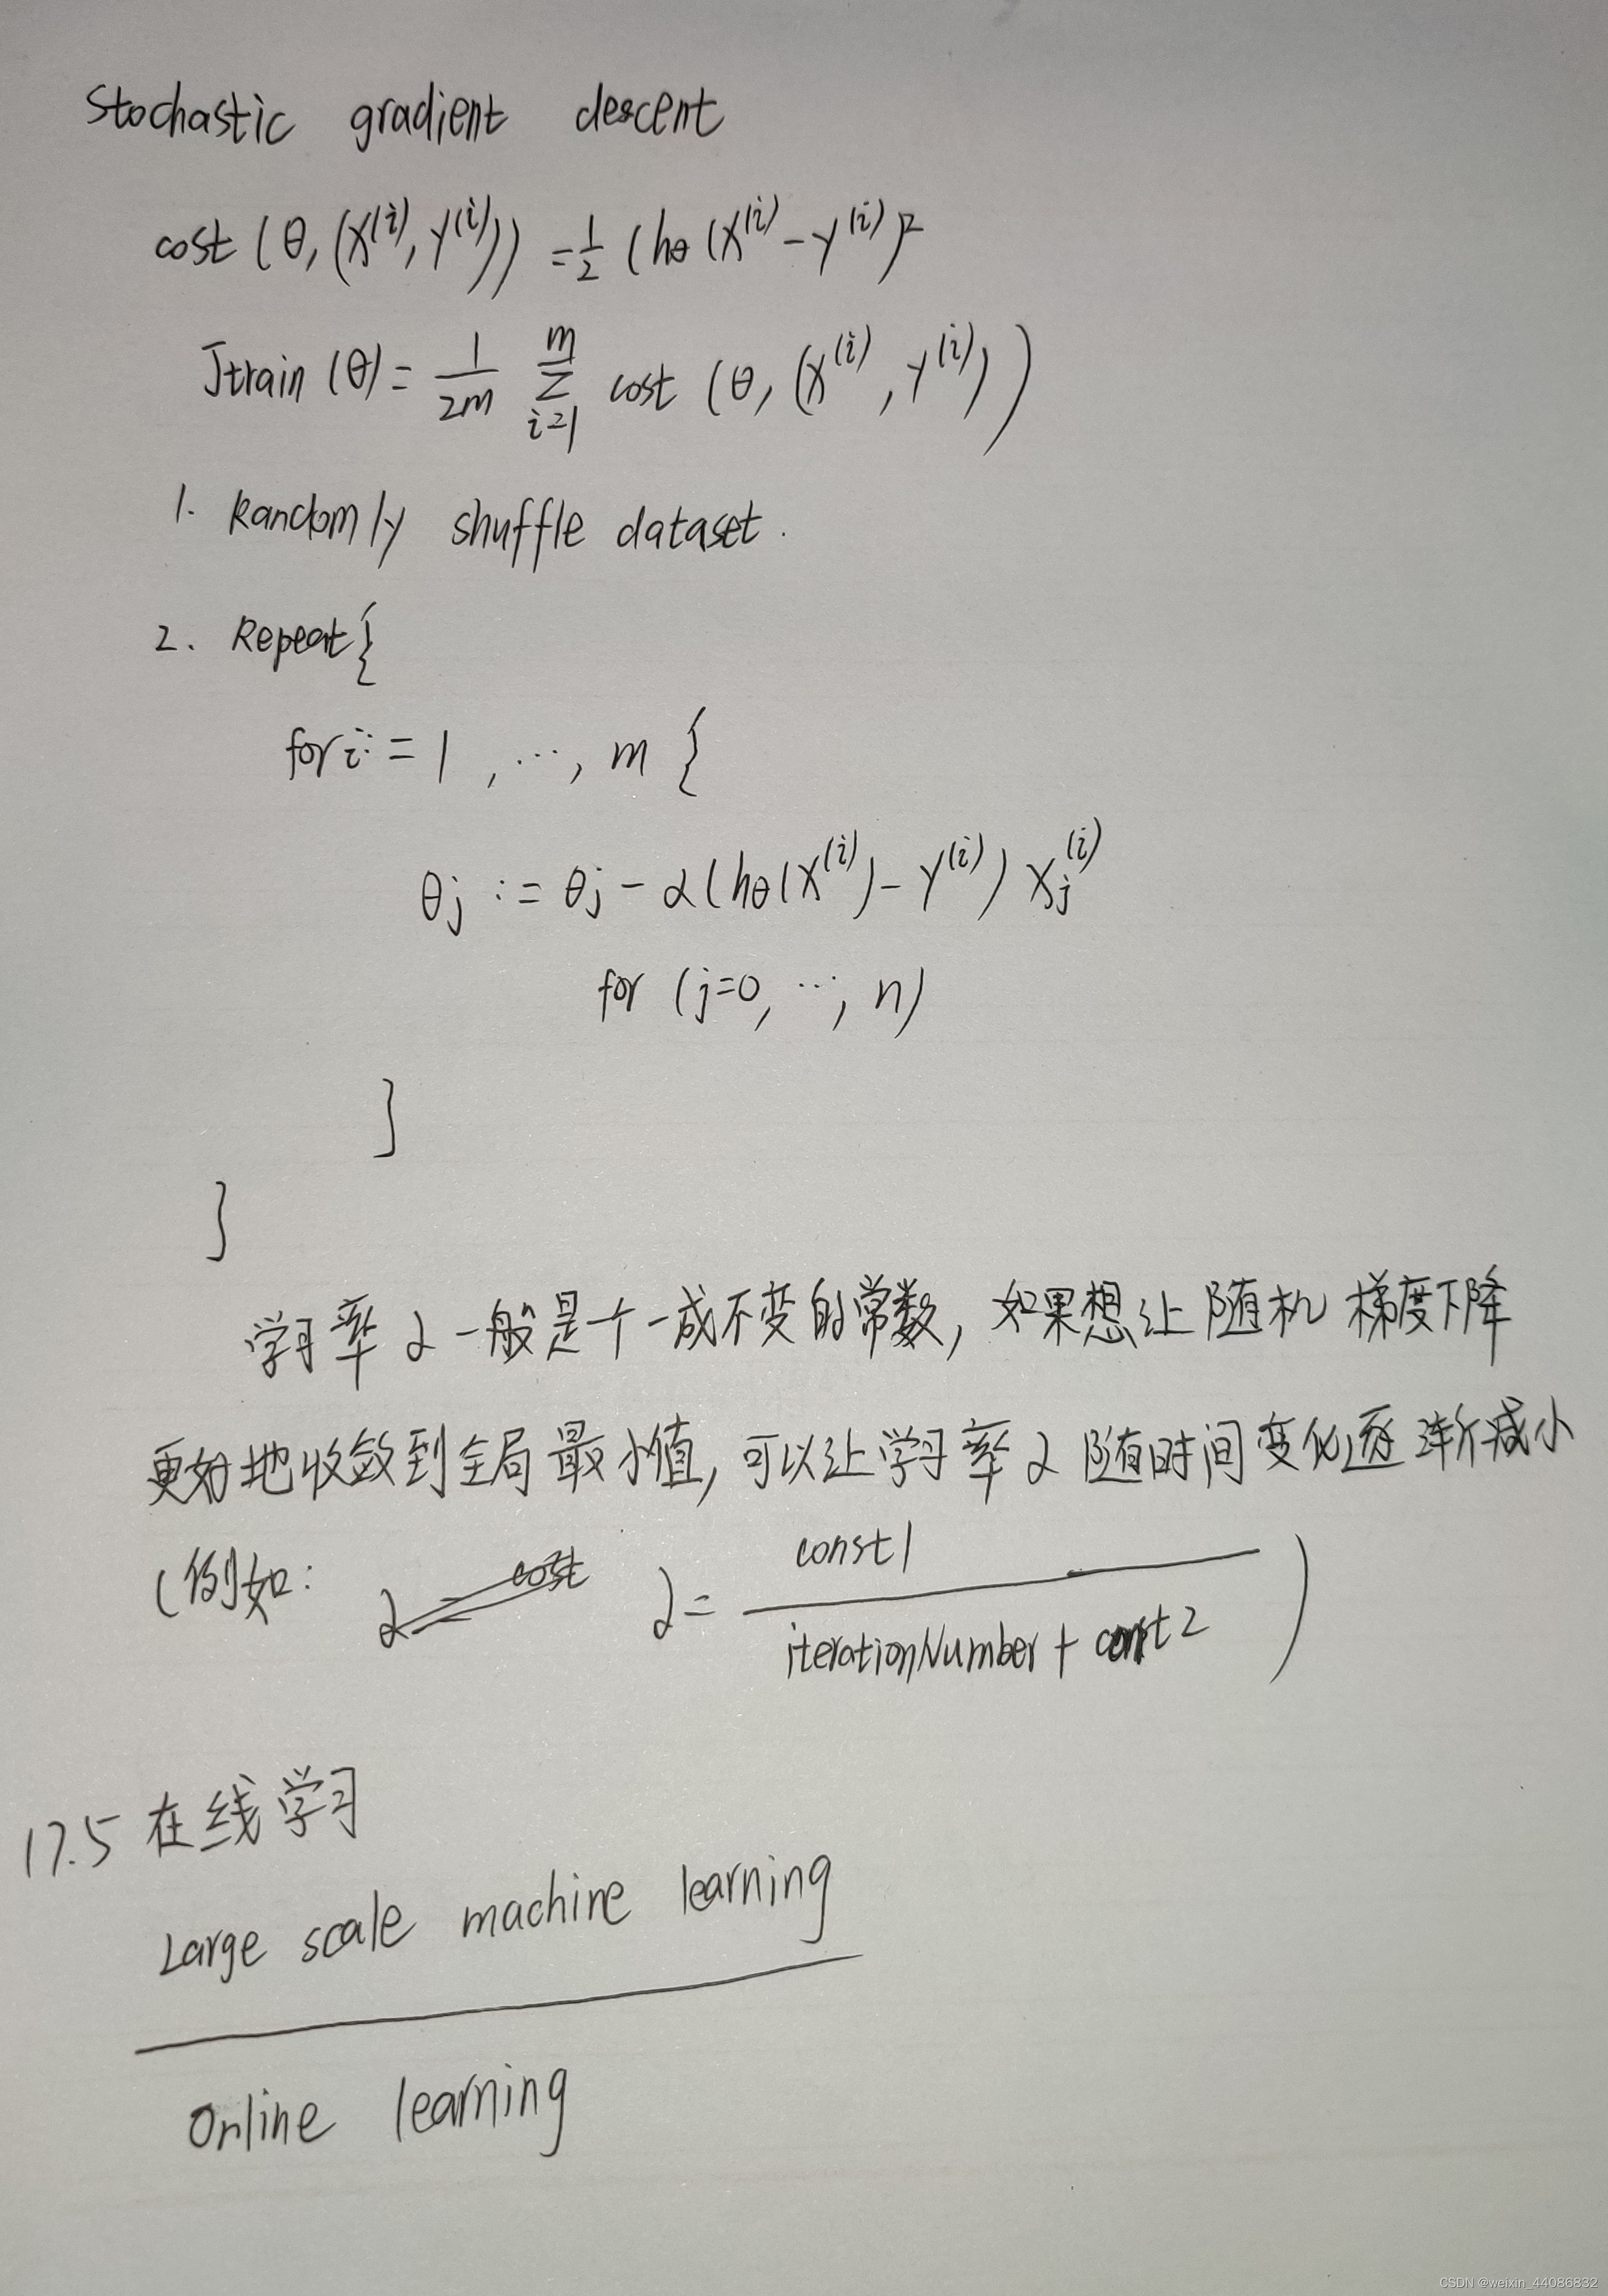 Stochastic gradient descent
cost (θ, (x⁽ⁱ⁾, y⁽ⁱ⁾)) = 1/2 (hθ (x⁽ⁱ⁾ - y⁽ⁱ⁾)²
Jtrain (θ) = 1/2m Σ_{i=1}^{m} cost (θ, (x⁽ⁱ⁾, y⁽ⁱ⁾))
1. Randomly shuffle dataset.
2. Repeat{
for i := 1, ..., m {
θj := θj - α (hθ(x⁽ⁱ⁾) - y⁽ⁱ⁾) xj⁽ⁱ⁾
for (j=0, ..., n)
}
}
学习率α一般是一个一成不变的常数,如果想让随机梯度下降
更好地收敛到全局最小值,可以让学习率α随时间变化逐渐减小
(例如: α = cost α = const1 / iterationNumber + const2 )
17.5 在线学习
Large scale machine learning
Online learning
CSDN @weixin_44086832